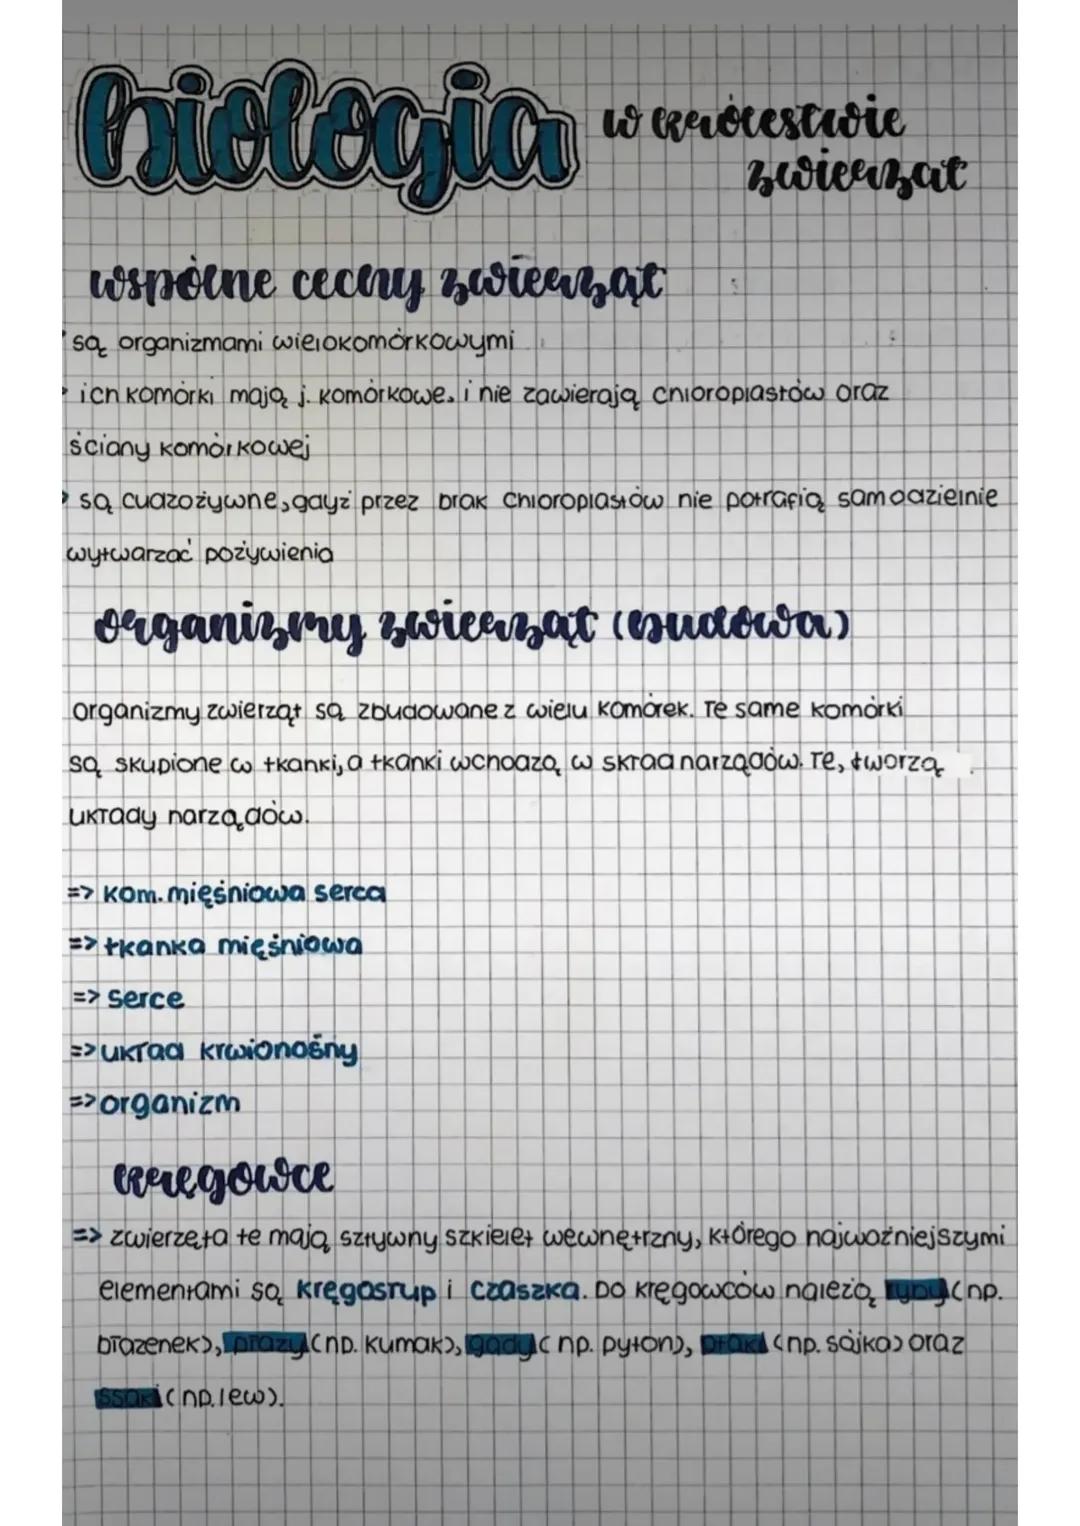 biologia w królestwie
zwierząt
wspólne cechy zwierząt
są organizmami wielokomórkowymi
• ich komórki mają j. komórkowe, i nie zawierają chloroplastów oraz
ściany komórkowej
• są cudzożywne, gdyż przez brak chloroplastów nie potrafią samodzielnie
wytwarzać pożywienia
organizmy zwierząt (budowa)
organizmy zwierząt są zbudowane z wielu komórek. Te same komórki
są skupione w tkanki, a tkanki wchodzą w skład narządów. Te, tworzą
układy narządów.
=> kom. mięśniowa serca
=> tkanka mięśniowa
=> serce
=> układ krwionośny
=> organizm
kręgowce
=> zwierzęta te mają sztywny szkielet wewnętrzny, którego najważniejszymi
elementami są kręgosłup i czaszka. Do kręgowców należą ryby (np.
błazenek), płazy (np. kumak), gady (np. pyton), ptaki (np. sójka) oraz
ssaki (np. lew).